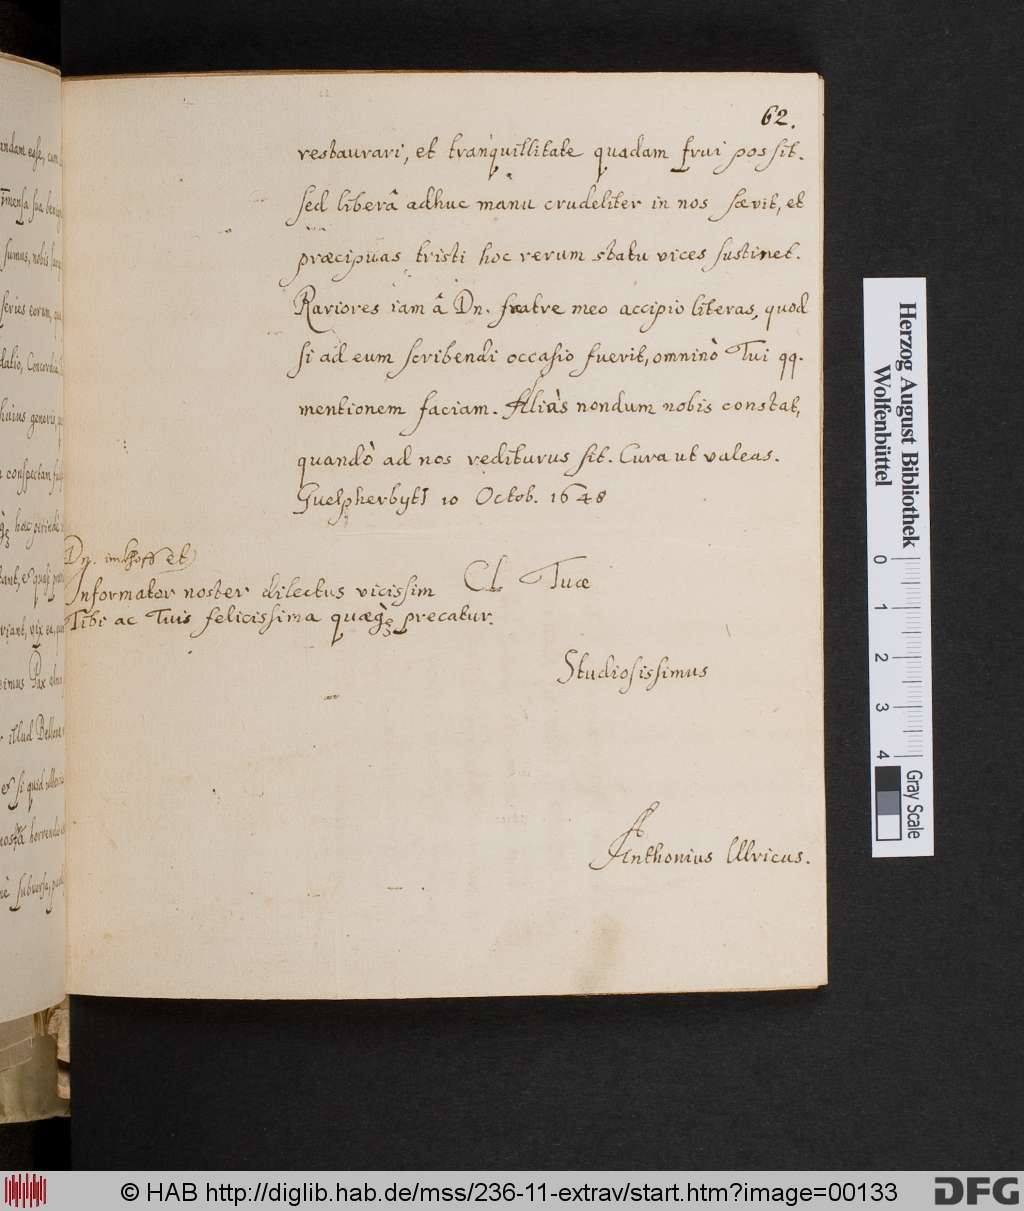 62.
restaurari, et tranquillitate quadam frui possit.
sed liberâ adhuc manu crudeliter in nos sævit, et
præcipuas tristi hoc rerum statu vices sustinet.
Rariores iam â Dn. fratre meo accipio literas, quod
si ad eum scribendi occasio fuerit, omninò Tui qq.
mentionem faciam. Aliàs nondum nobis constat,
quandò ad nos rediturus sit. Cura ut valeas.
Guelpherbyti 10 Octob. 1648
Dn. imhoff et
Informator noster dilectus vicissim
Tibi ac Tuis felicissima quæq; precatur.
Cl Tuæ
Studiosissimus
Anthonius Ulricus.
andam esse, cum
sumus, nobis
series eorum,
datio, Concordia
huius generis
conspectam
hoc
viant, vix ea,
Pax
illud
et si quid
horrenda
subversa,
Herzog August Bibliothek
Wolfenbüttel
0 1 2 3 4
Gray Scale
© HAB http://diglib.hab.de/mss/236-11-extrav/start.htm?image=00133
DFG